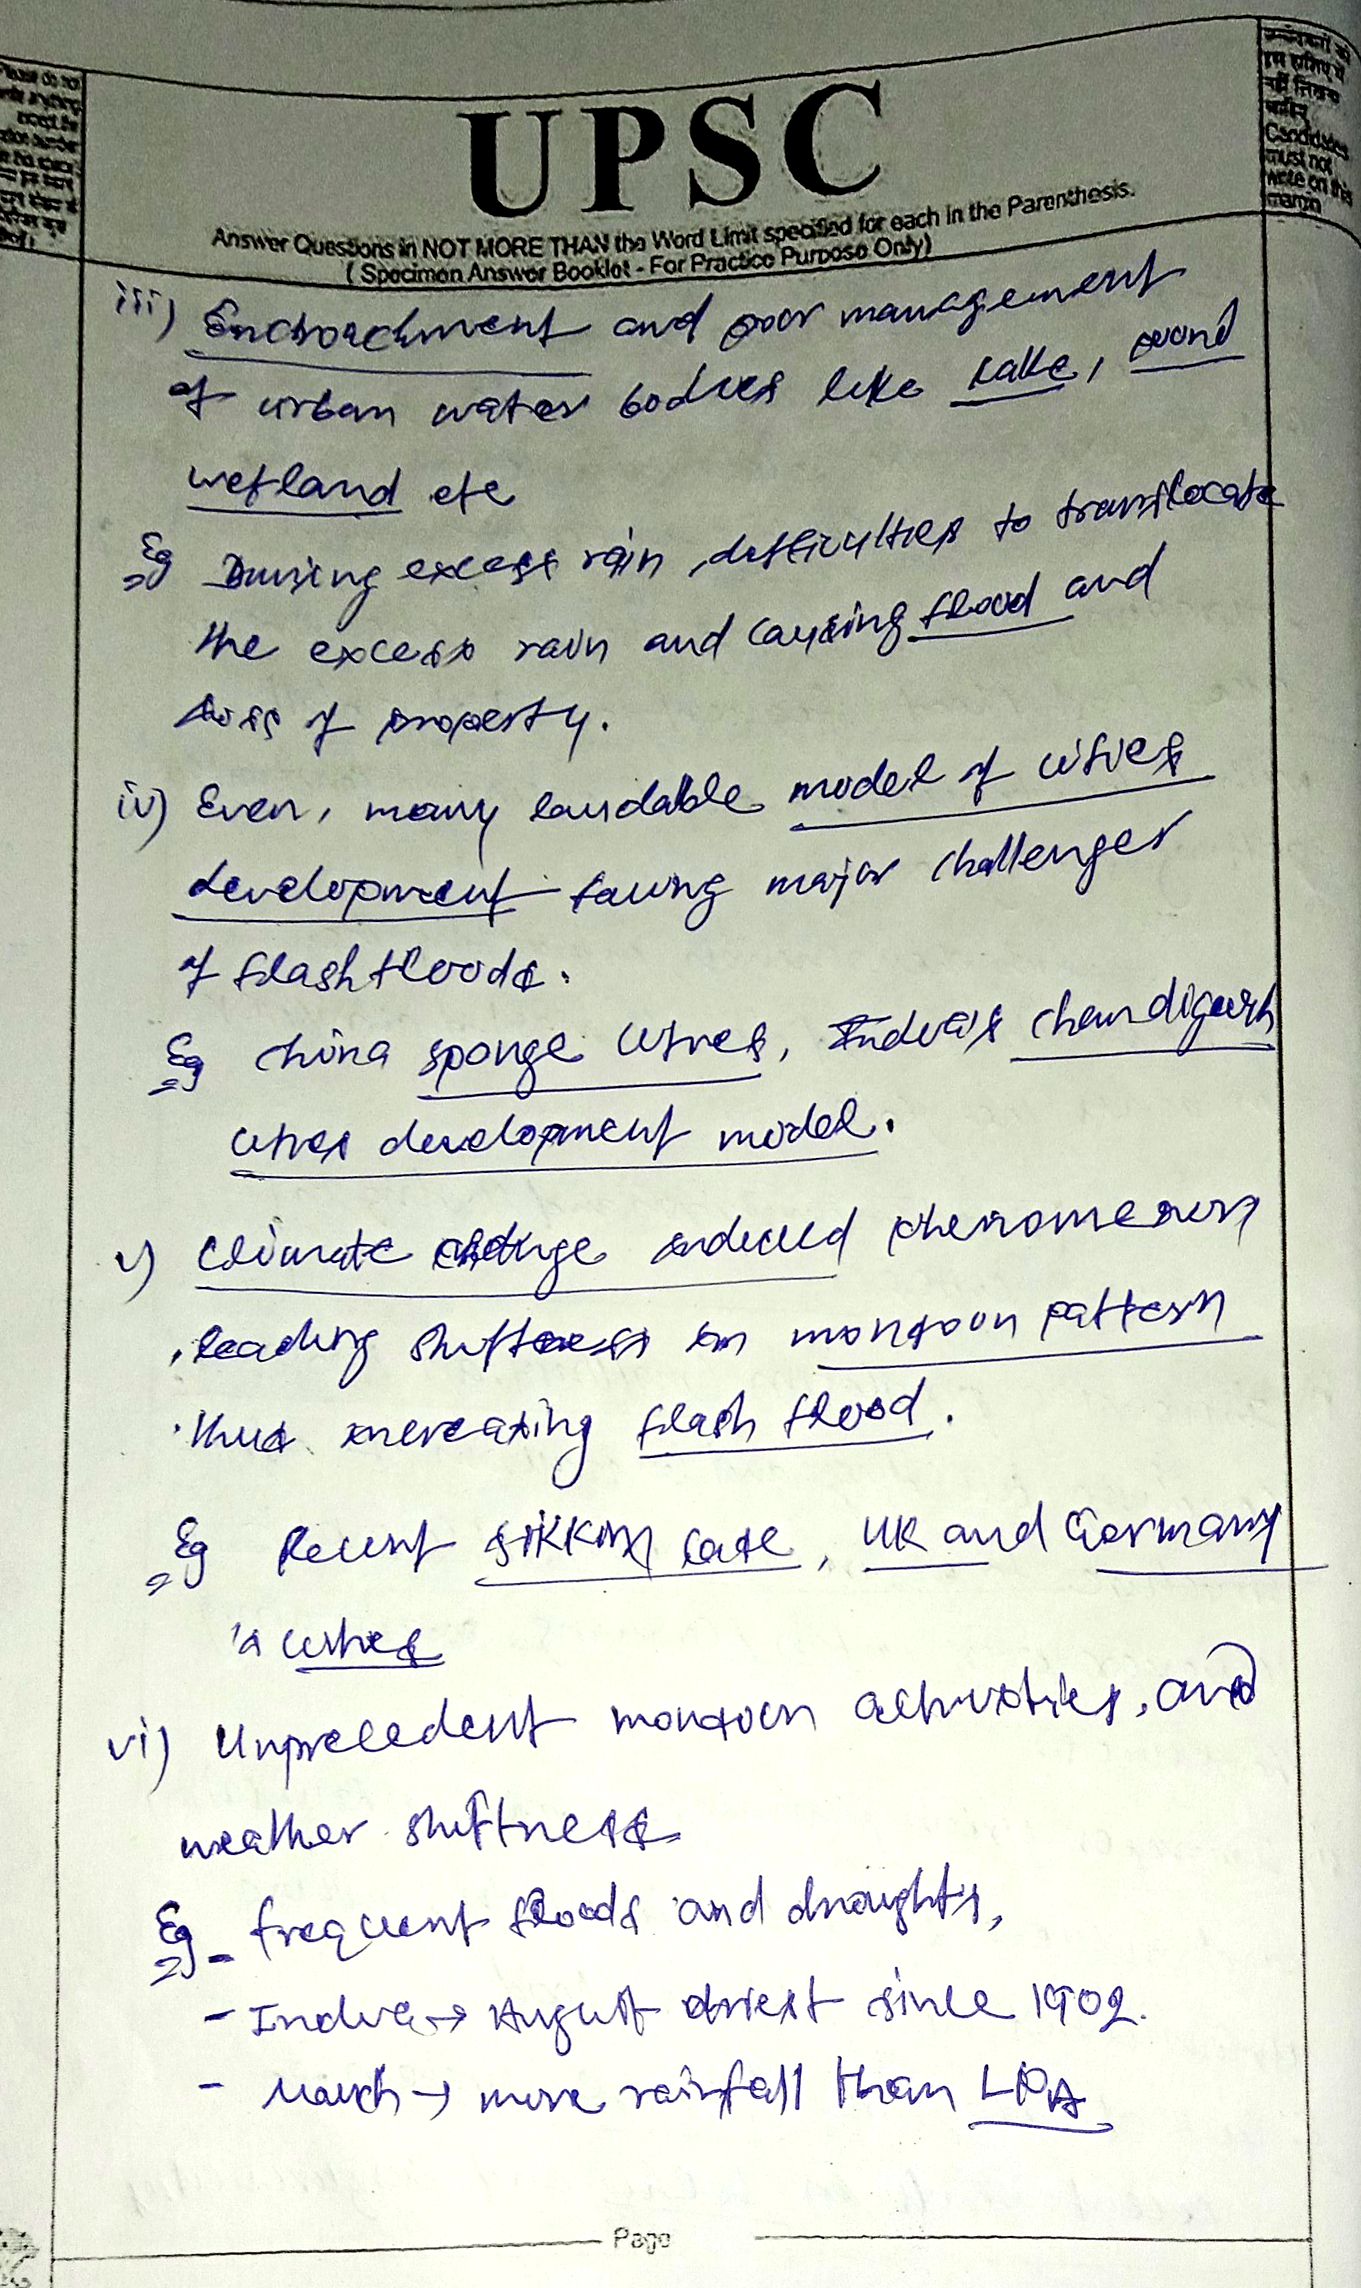 UPSC
Answer Questions in NOT MORE THAN the Word Limit specified for each in the Parenthesis.
( Specimen Answer Booklet - For Practice Purpose Only)
Candidates
must not
write on this
margin
iii) Encroachment and poor management
of urban water bodies like Lake, pond
wetland etc
Eg During excess rain, difficulties to translocate
the excess rain and causing flood and
loss of property.
iv) Even, many laudable model of cities
development facing major challenges
of flash floods.
Eg China sponge cities, India's Chandigarh
cities development model.
v) Climate change induced phenomenon
leading shiftness in monsoon pattern
thus increasing flash flood.
Eg Recent SIKKIM case, UK and Germany
's cities
vi) Unprecedent monsoon activities, and
weather shiftness
Eg - frequent floods and draughts,
- India → August driest since 1902.
- March → more rainfall than LPA
Page